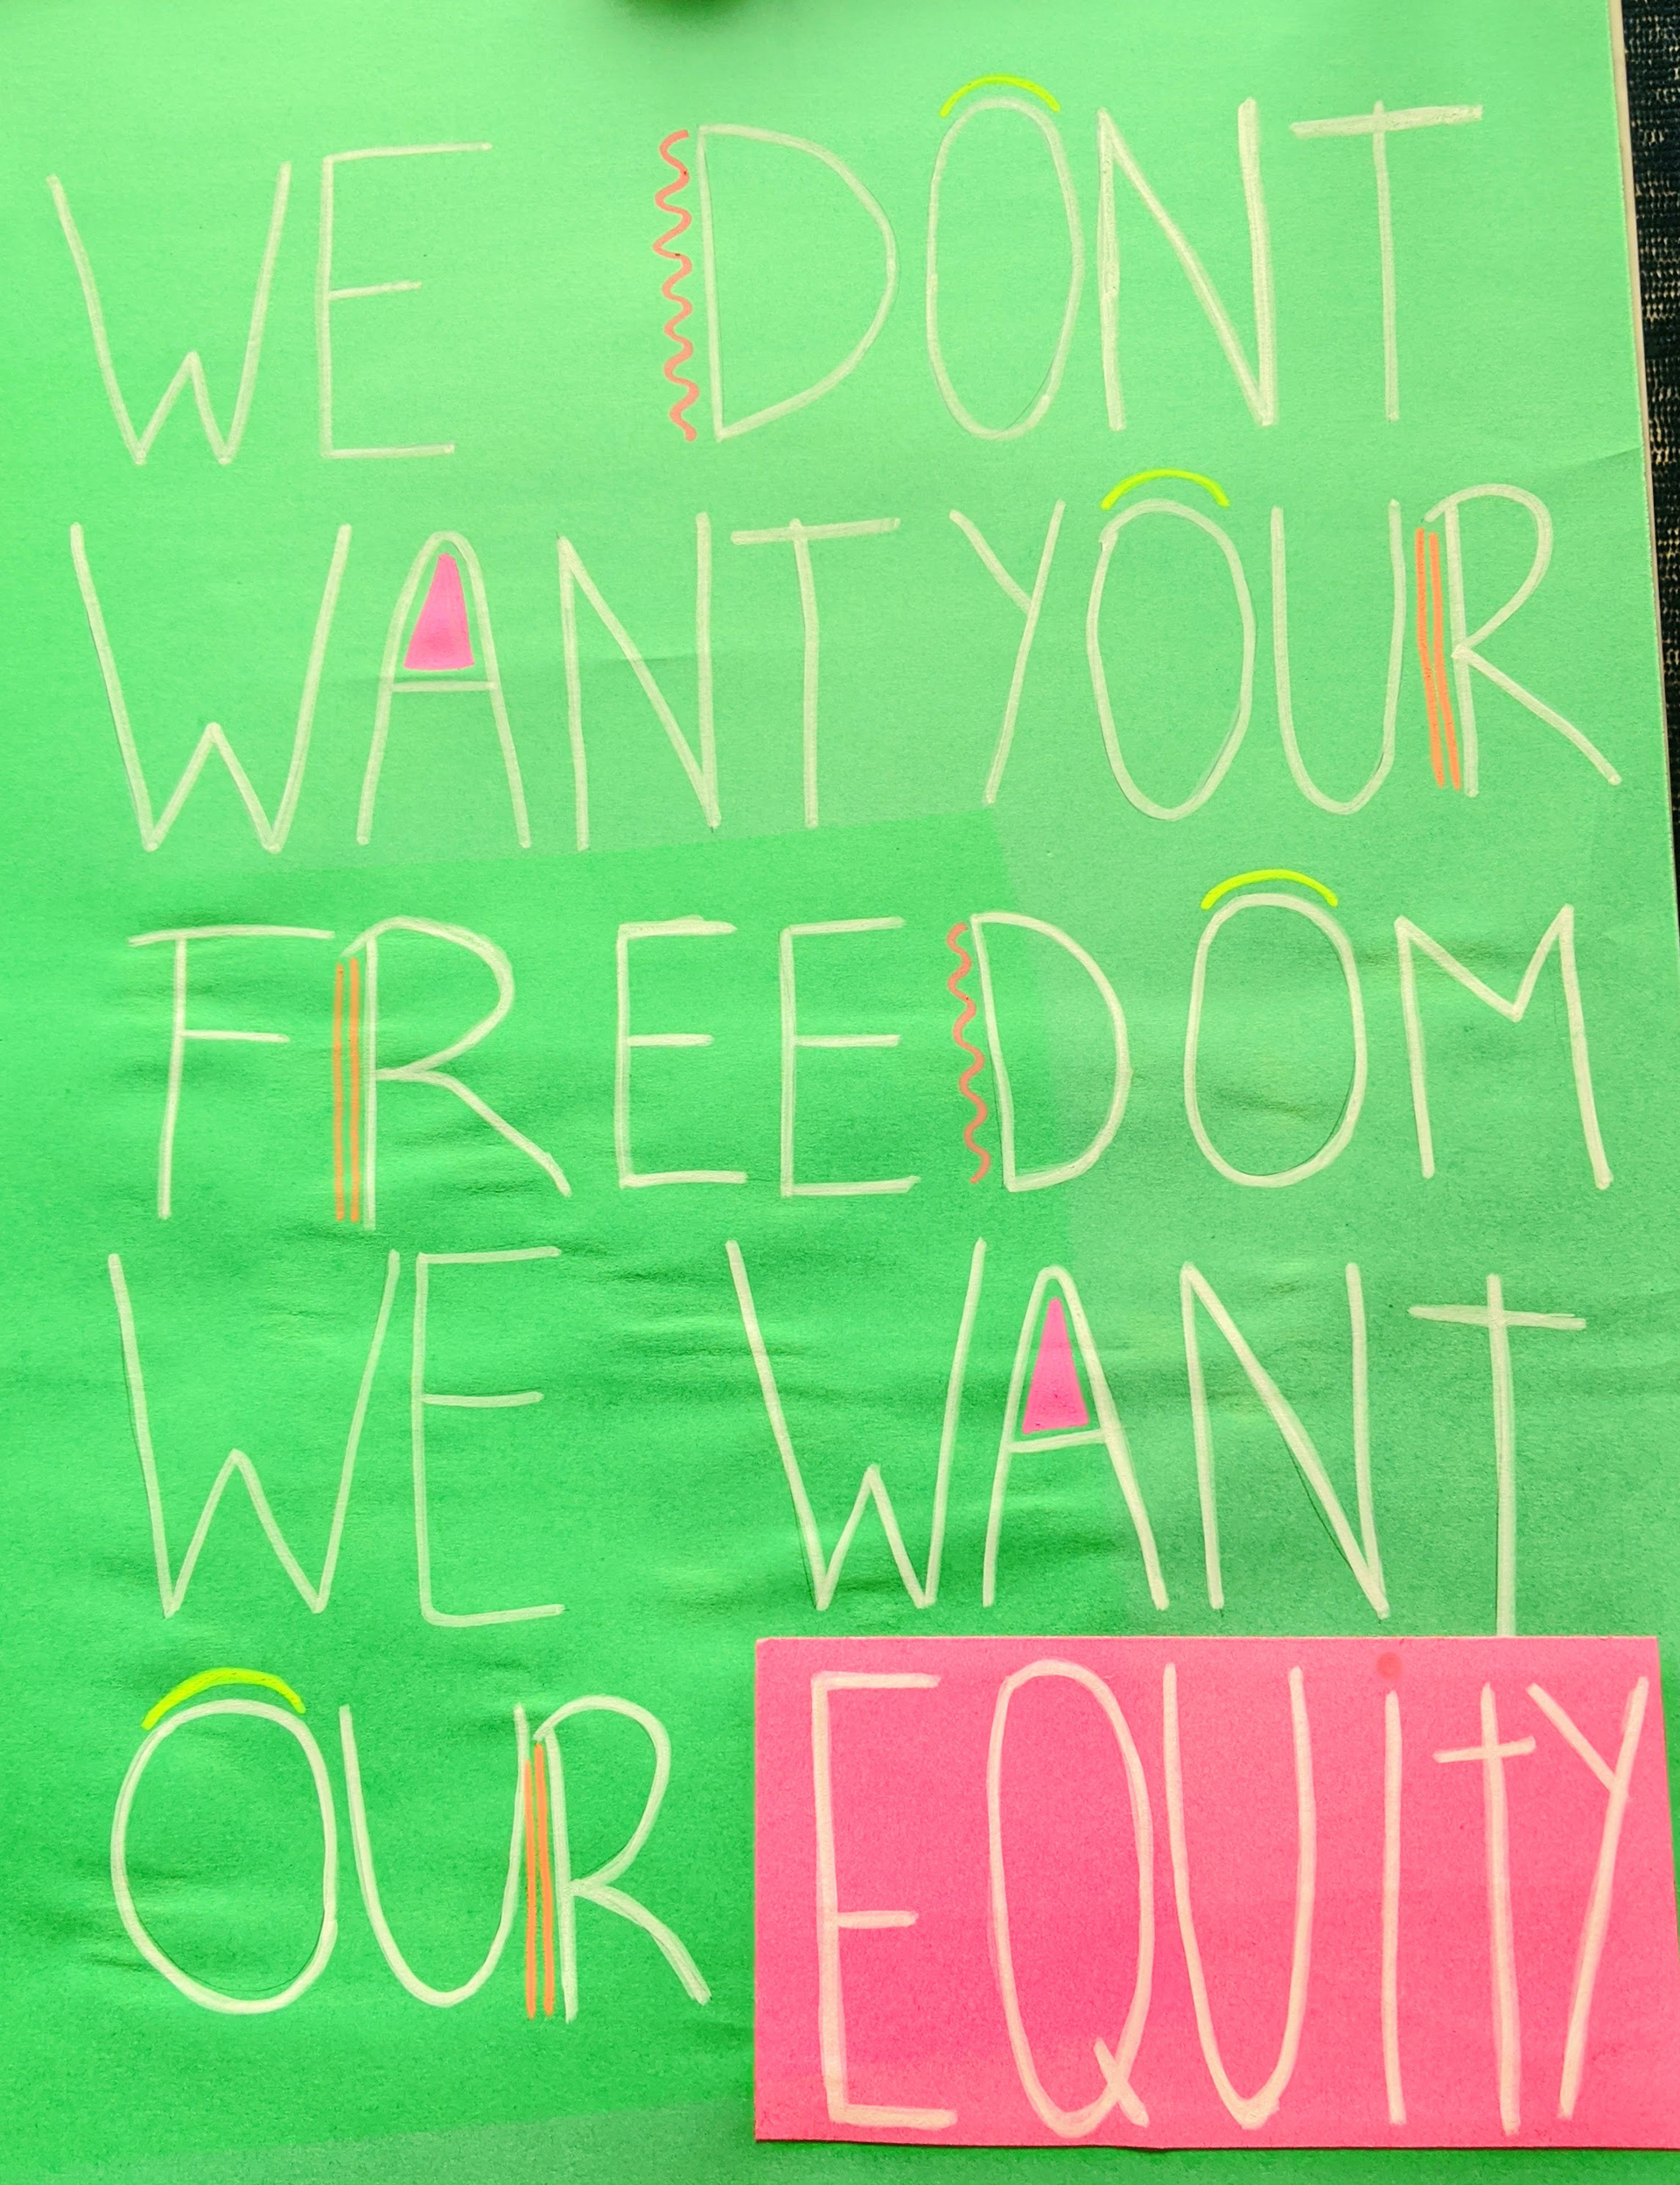 WE DONT
WANT YOUR
FREEDOM
WE WANT
OUR EQUITY